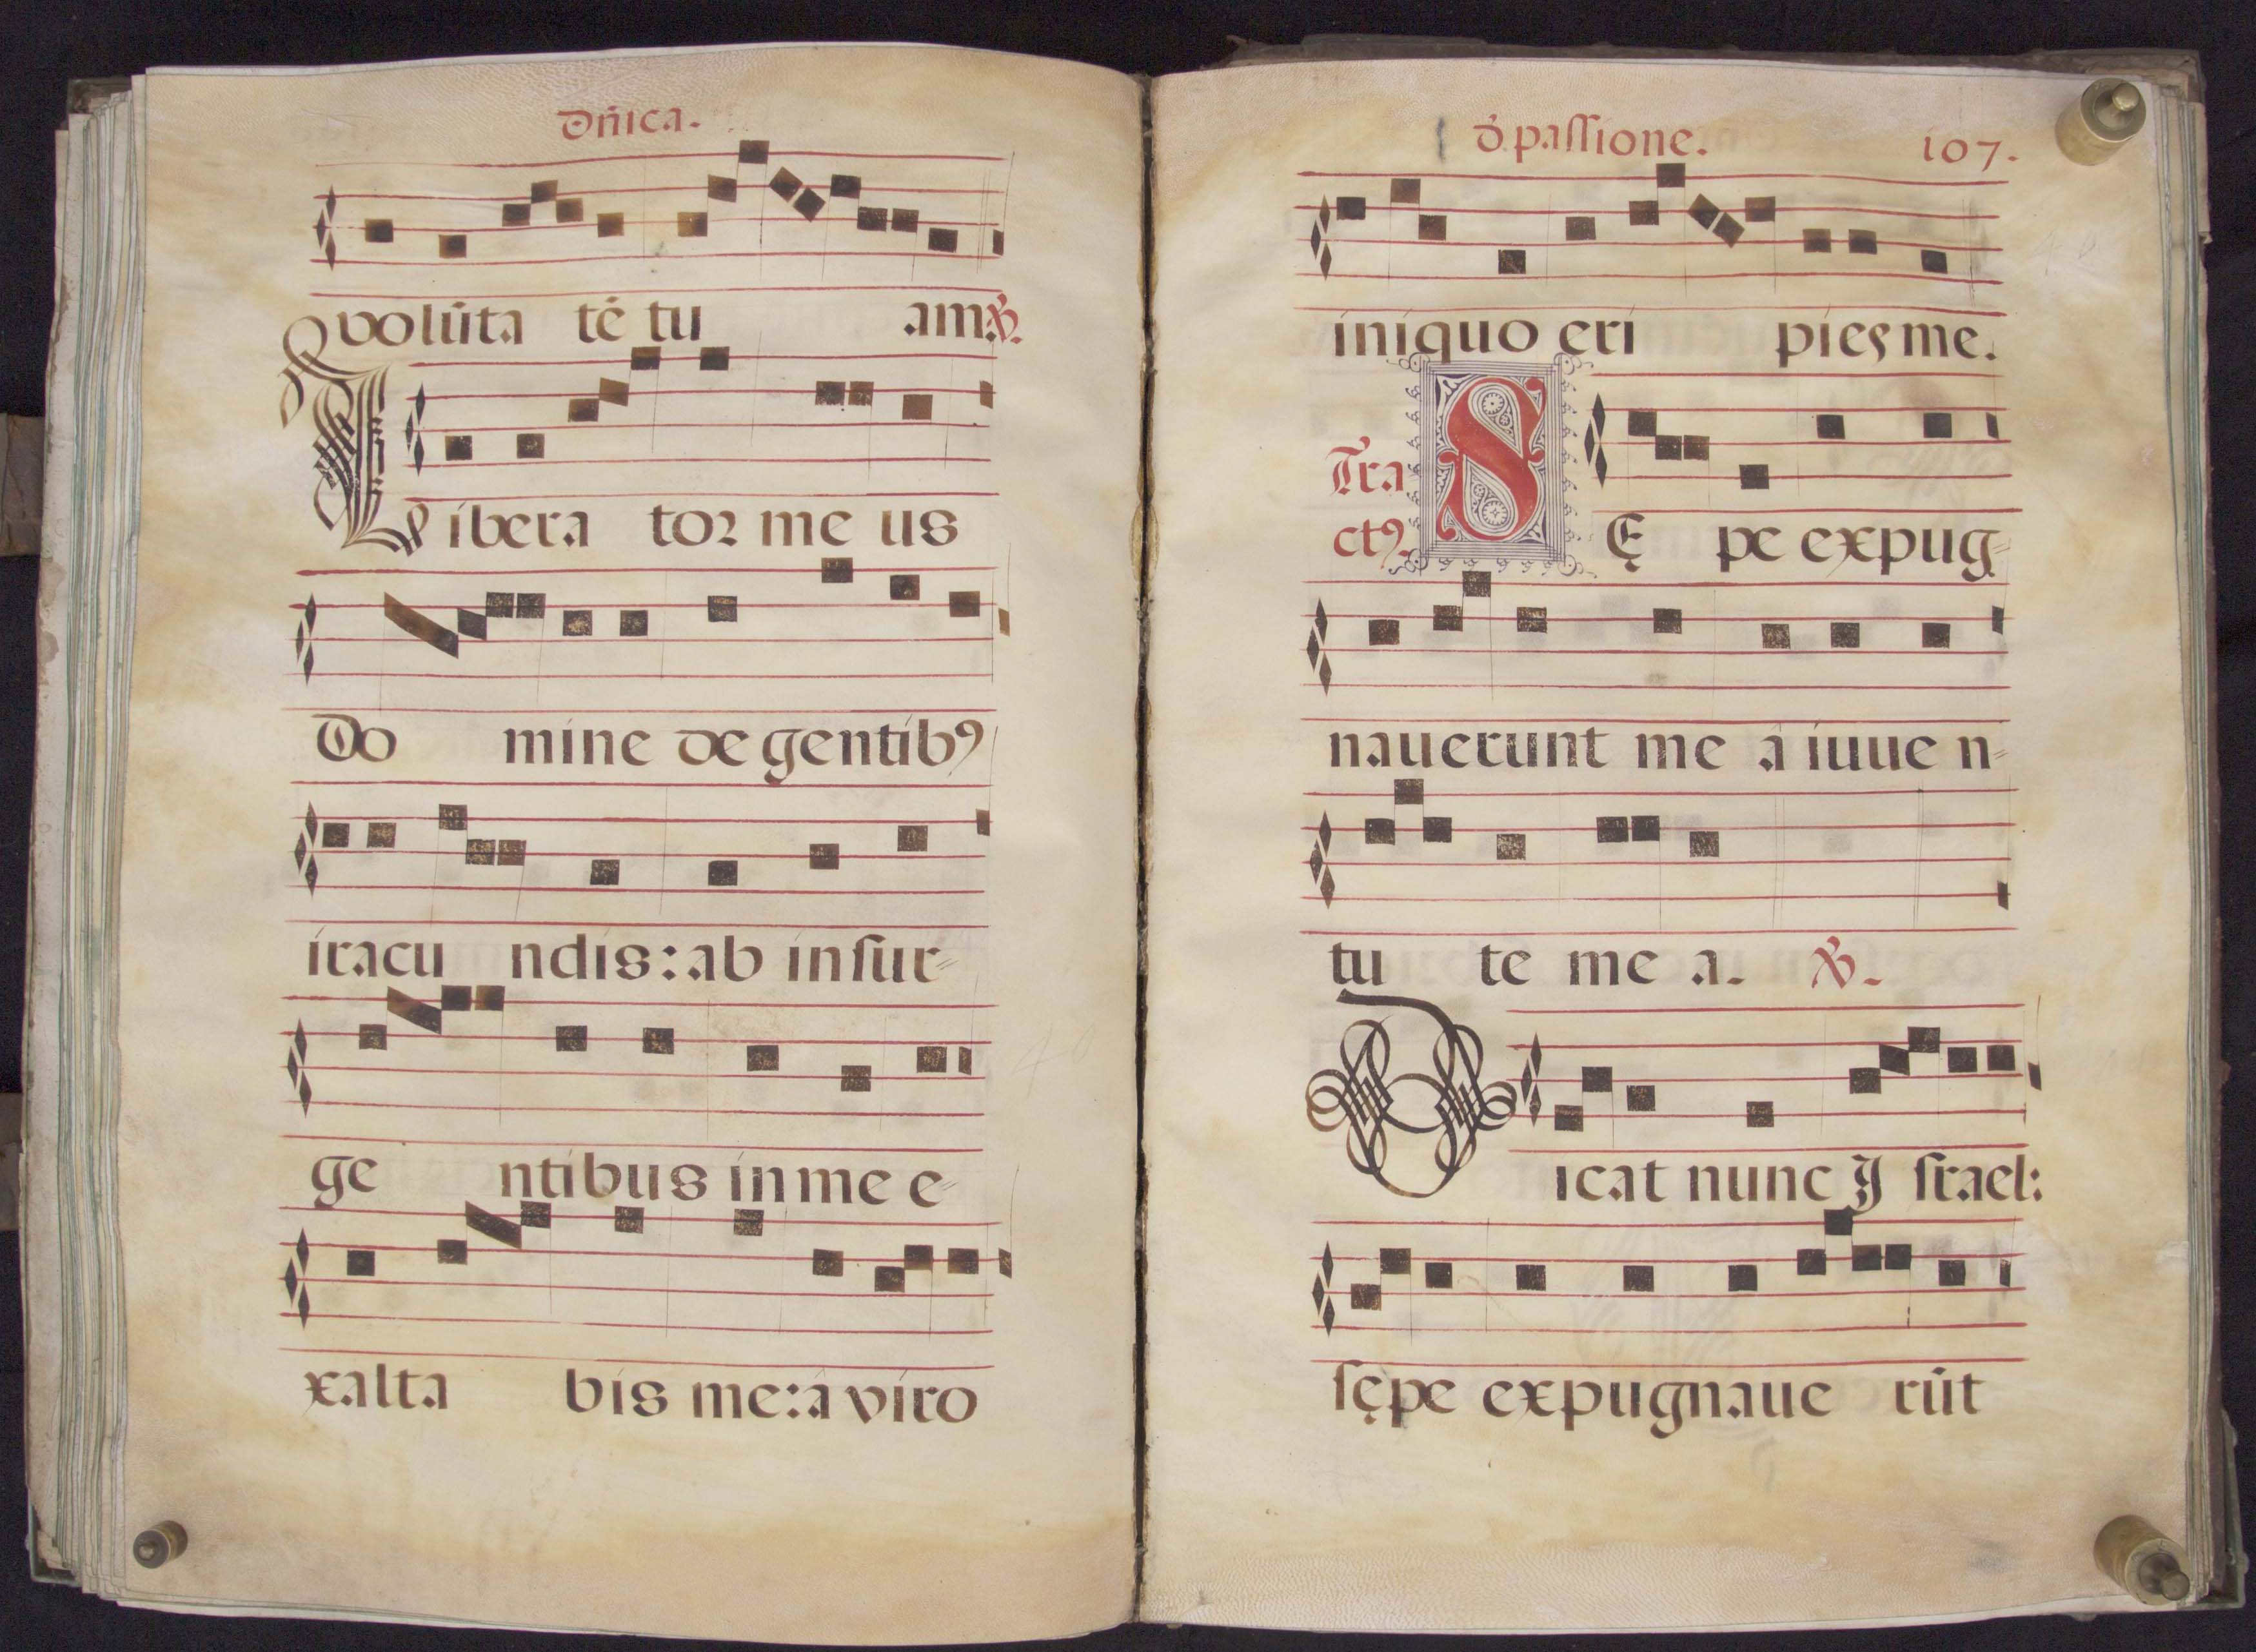 Dñica.
volũta tẽ tu am ℣.
Libera tor me us
Do mine de gentibꝰ
iracu ndis: ab insur-
ge ntibus in me e-
xalta bis me: a viro
d̄ passione. 107.
iniquo eri pies me.
Tra
ctꝰ. SĘ pe expug-
nauerunt me a iuue n-
tu te me a. ℣.
Dicat nunc Israel:
sępe expugnaue rũt